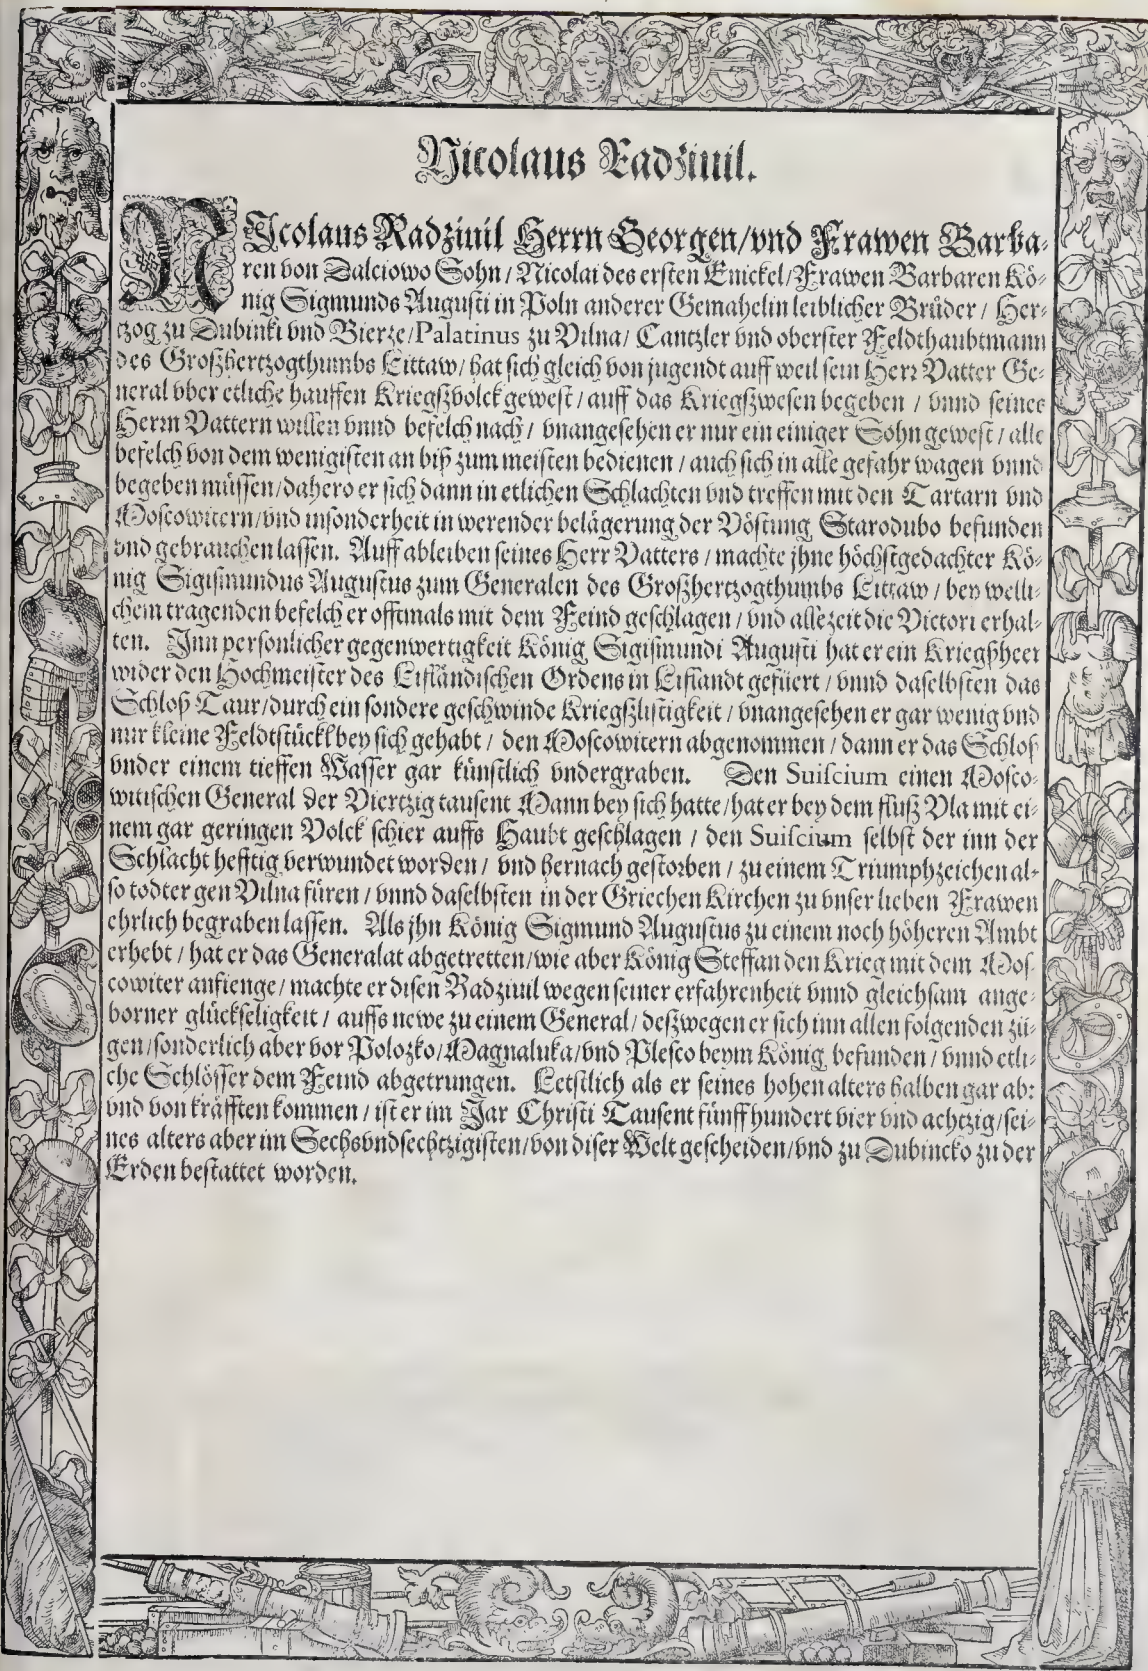 Nicolaus Radziuil.
NJcolaus Radziuil Herrn Georgen/vnd Frawen Barba-
ren von Dalciowo Sohn / Nicolai des ersten Enickel/Frawen Barbaren Kö-
nig Sigmunds Augusti in Poln anderer Gemahelin leiblicher Brüder / Her-
tzog zu Dubinki vnd Bierze/Palatinus zu Vilna/ Cantzler vnd oberster Feldthaubtmann
des Großhertzogthumbs Littaw/ hat sich gleich von jugendt auff weil sein Herr Vatter Ge-
neral vber etliche hauffen Kriegßvolck gewest / auff das Kriegßwesen begeben / vnnd seines
Herrn Vattern willen vnnd befelch nach / vnangesehen er nur ein einiger Sohn gewest / alle
befelch von dem wenigisten an biß zum meisten bedienen / auch sich in alle gefahr wagen vnnd
begeben müssen/dahero er sich dann in etlichen Schlachten vnd treffen mit den Tartarn vnd
Moscowitern/vnd insonderheit in werender belägerung der Vöstung Starodubo befunden
vnd gebrauchen lassen. Auff ableiben seines Herr Vatters / machte jhne höchstgedachter Kö-
nig Sigismundus Augustus zum Generalen des Großhertzogthumbs Littaw / bey welli-
chem tragenden befelch er offtmals mit dem Feind geschlagen / vnd allezeit die Victori erhal-
ten. Inn personlicher gegenwertigkeit König Sigismundi Augusti hat er ein Kriegßheer
wider den Hochmeister des Lifländischen Ordens in Liflandt gefüert / vnnd daselbsten das
Schloß Taur/durch ein sondere geschwinde Kriegßlistigkeit / vnangesehen er gar wenig vnd
nur kleine Feldtstückl bey sich gehabt / den Moscowitern abgenommen / dann er das Schloß
vnder einem tieffen Wasser gar künstlich vndergraben. Den Suiscium einen Mosco-
witischen General der Viertzig tausent Mann bey sich hatte/hat er bey dem fluß Vla mit ei-
nem gar geringen Volck schier auffs Haubt geschlagen / den Suiscium selbst der inn der
Schlacht hefftig verwundet worden / vnd hernach gestorben / zu einem Triumphzeichen al-
so todter gen Vilna füren / vnnd daselbsten in der Griechen Kirchen zu vnser lieben Frawen
ehrlich begraben lassen. Als jhn König Sigmund Augustus zu einem noch höheren Ambt
erhebt / hat er das Generalat abgetretten/wie aber König Steffan den Krieg mit dem Mos-
cowiter anfienge/machte er disen Radziuil wegen seiner erfahrenheit vnnd gleichsam ange-
borner glückseligkeit / auffs newe zu einem General/ deßwegen er sich inn allen folgenden zü-
gen/sonderlich aber vor Polozko/Magnaluka/vnd Plesco beym König befunden / vnnd etli-
che Schlösser dem Feind abgetrungen. Letstlich als er seines hohen alters halben gar ab:
vnd von kräfften kommen / ist er im Jar Christi Tausent fünff hundert vier vnd achtzig/sei-
nes alters aber im Sechsvndsechtzigisten/von diser Welt gescheiden/vnd zu Dubincko zu der
Erden bestattet worden.